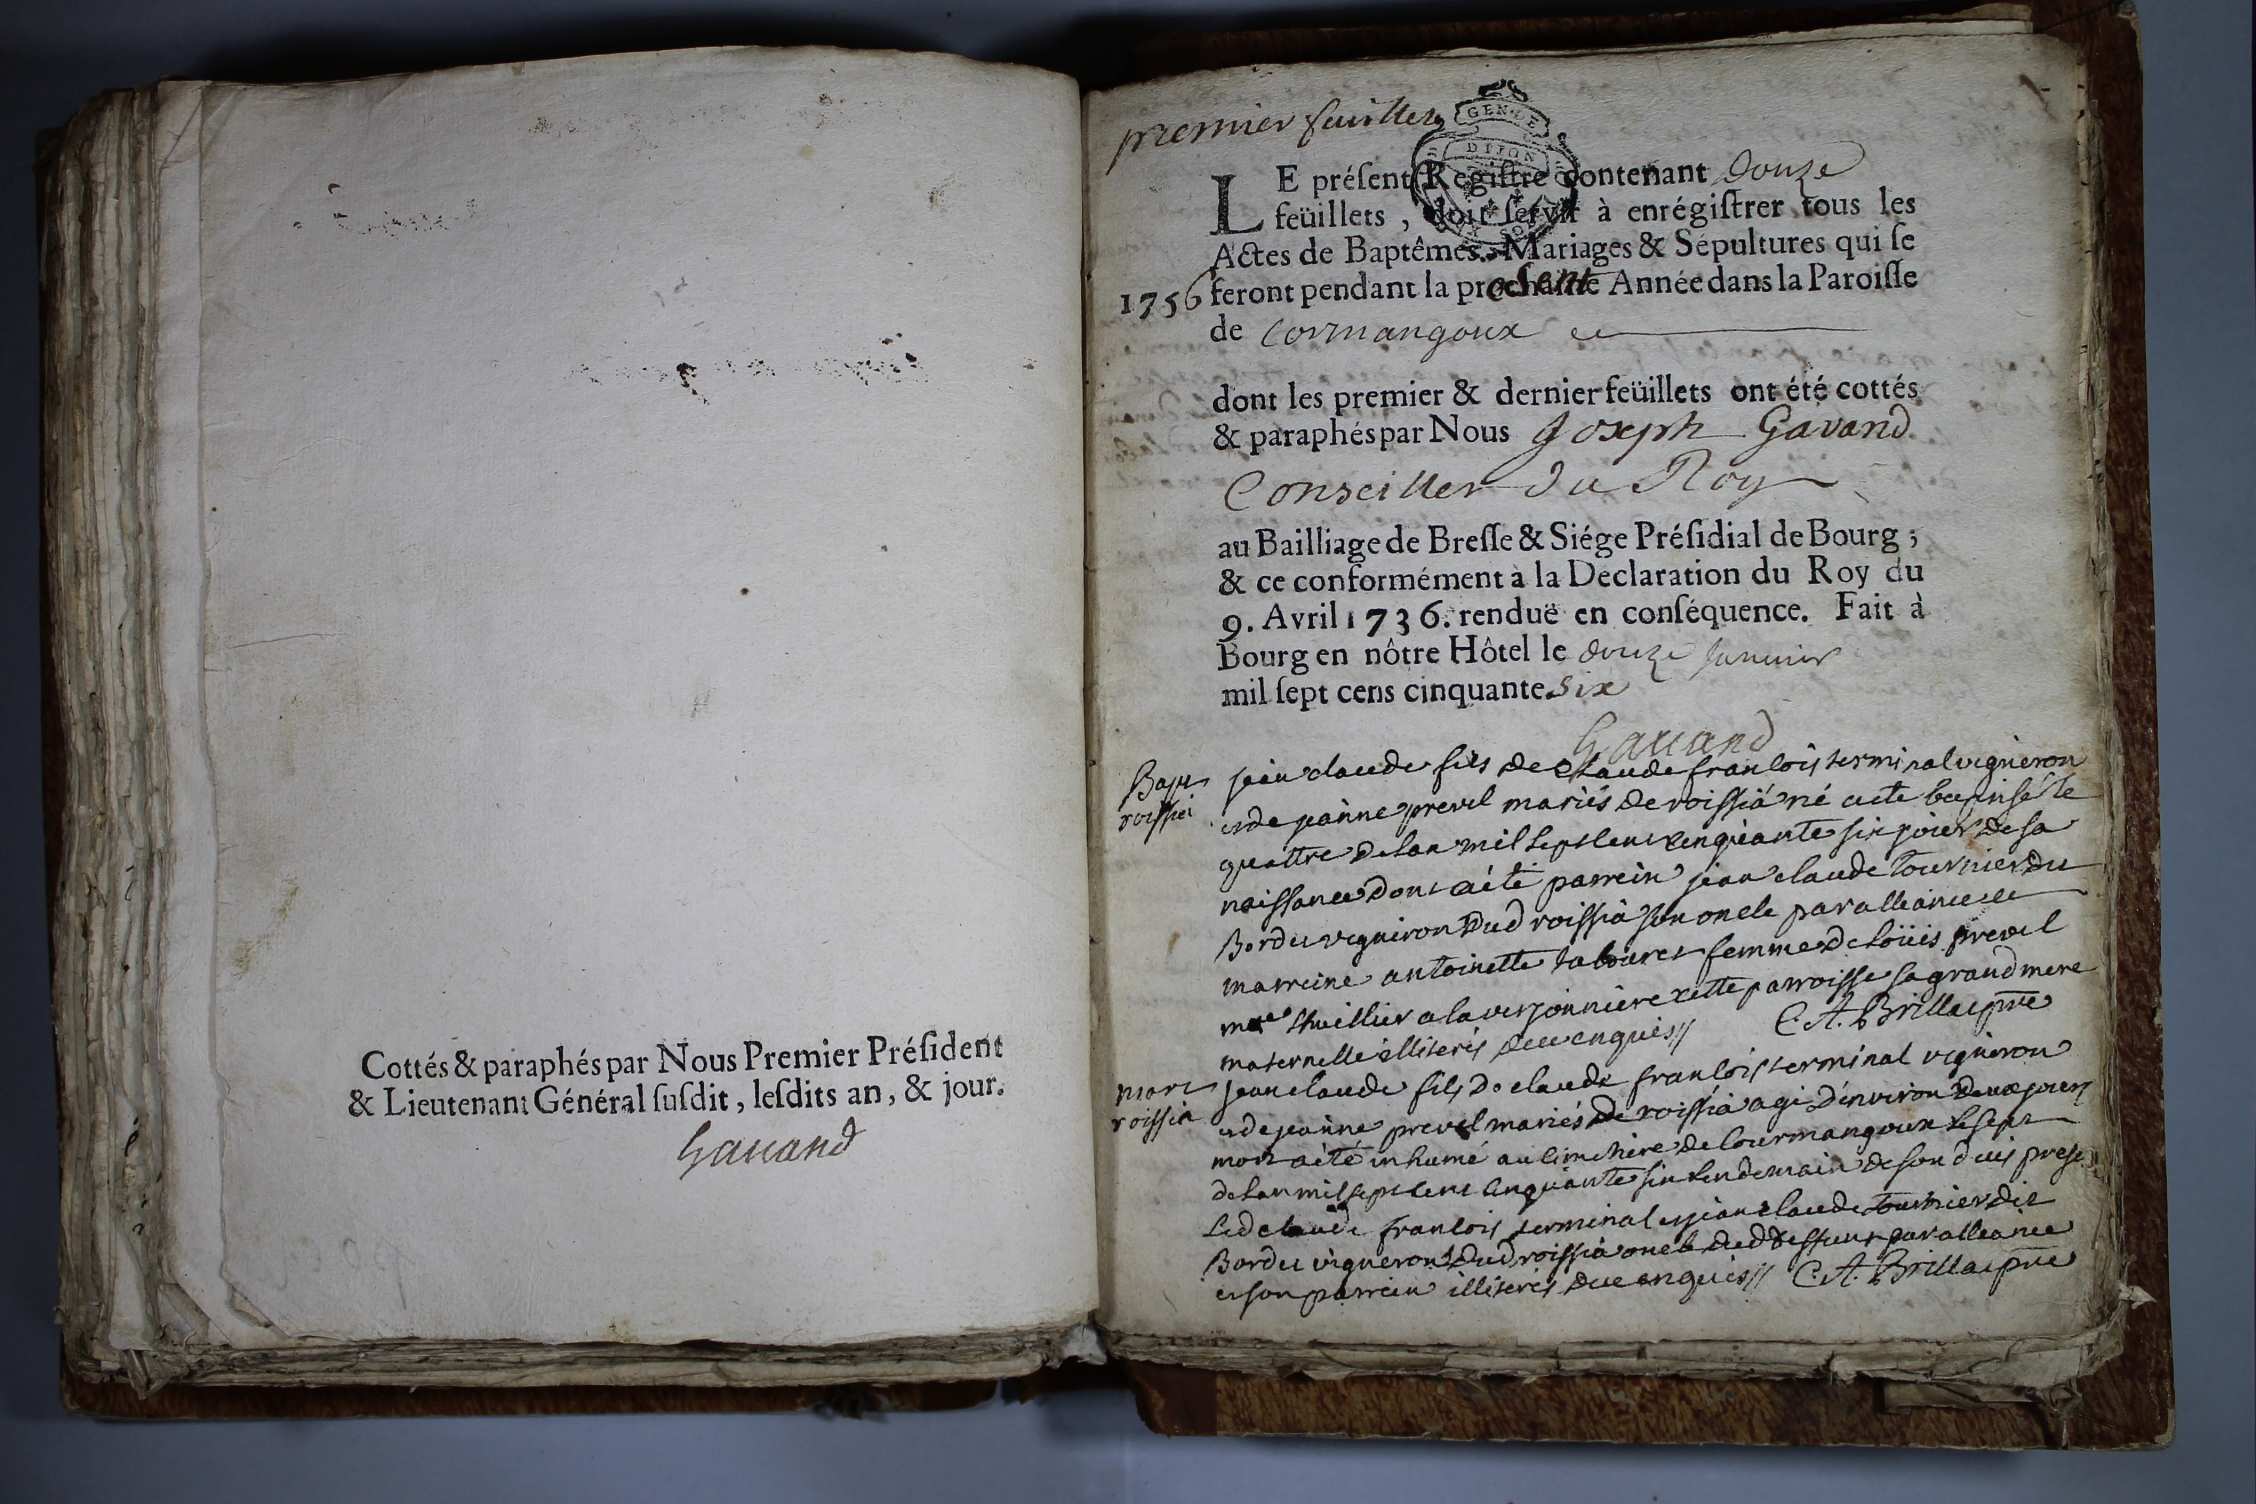 Cottés & paraphés par Nous Premier Préſident
& Lieutenant Général ſuſdit, leſdits an, & jour.
Gauand
premier feuillet
GEN. DE
DIJON
LE préſent Regiſtre contenant douze
feüillets, doit ſervir à enrégiſtrer tous les
Actes de Baptêmes, Mariages & Sépultures qui ſe
1756 feront pendant la prochaine Année dans la Paroiſſe
de Cormangoux
dont les premier & dernier feüillets ont été cottés
& paraphés par Nous Joseph Gavand
Conseiller du Roy
au Bailliage de Breſſe & Siége Préſidial de Bourg ;
& ce conformément à la Declaration du Roy du
9. Avril 1736. renduë en conſéquence. Fait à
Bourg en nôtre Hôtel le douze Januier
mil ſept cens cinquante six
Gauand
Bapt
roissia
jean claude fils de Claude francois terminal vigneron
et de jeanne prevel mariés de roissia né a ete baptisé le
quattre de lan mil sept cent cinquante six jour de sa
naissance dont a été parrein jean claude tournier du
Bordet vigneron dud roissia son oncle par alleance et
marreine antoinette femme de loüis prevel
a la verjonniere cette parroisse sa grand mere
maternelle illiterés de ce enquis // C. A. Brillat ptre
mort
roissia
jean claude fils de claude francois terminal vigneron
et de jeanne prevel mariés de roissia agé d'environ deux jours
mort a été inhumé au cimetiere de Courmangoux le sept
de lan mil sept cent cinquante six lendemain de son decés
led claude francois terminal et jean claude tournier dit
Bordet vigneron dud roissia oncle dud deffunt par alleance
et son parrein illiterés de ce enquis // C. A. Brillat ptre